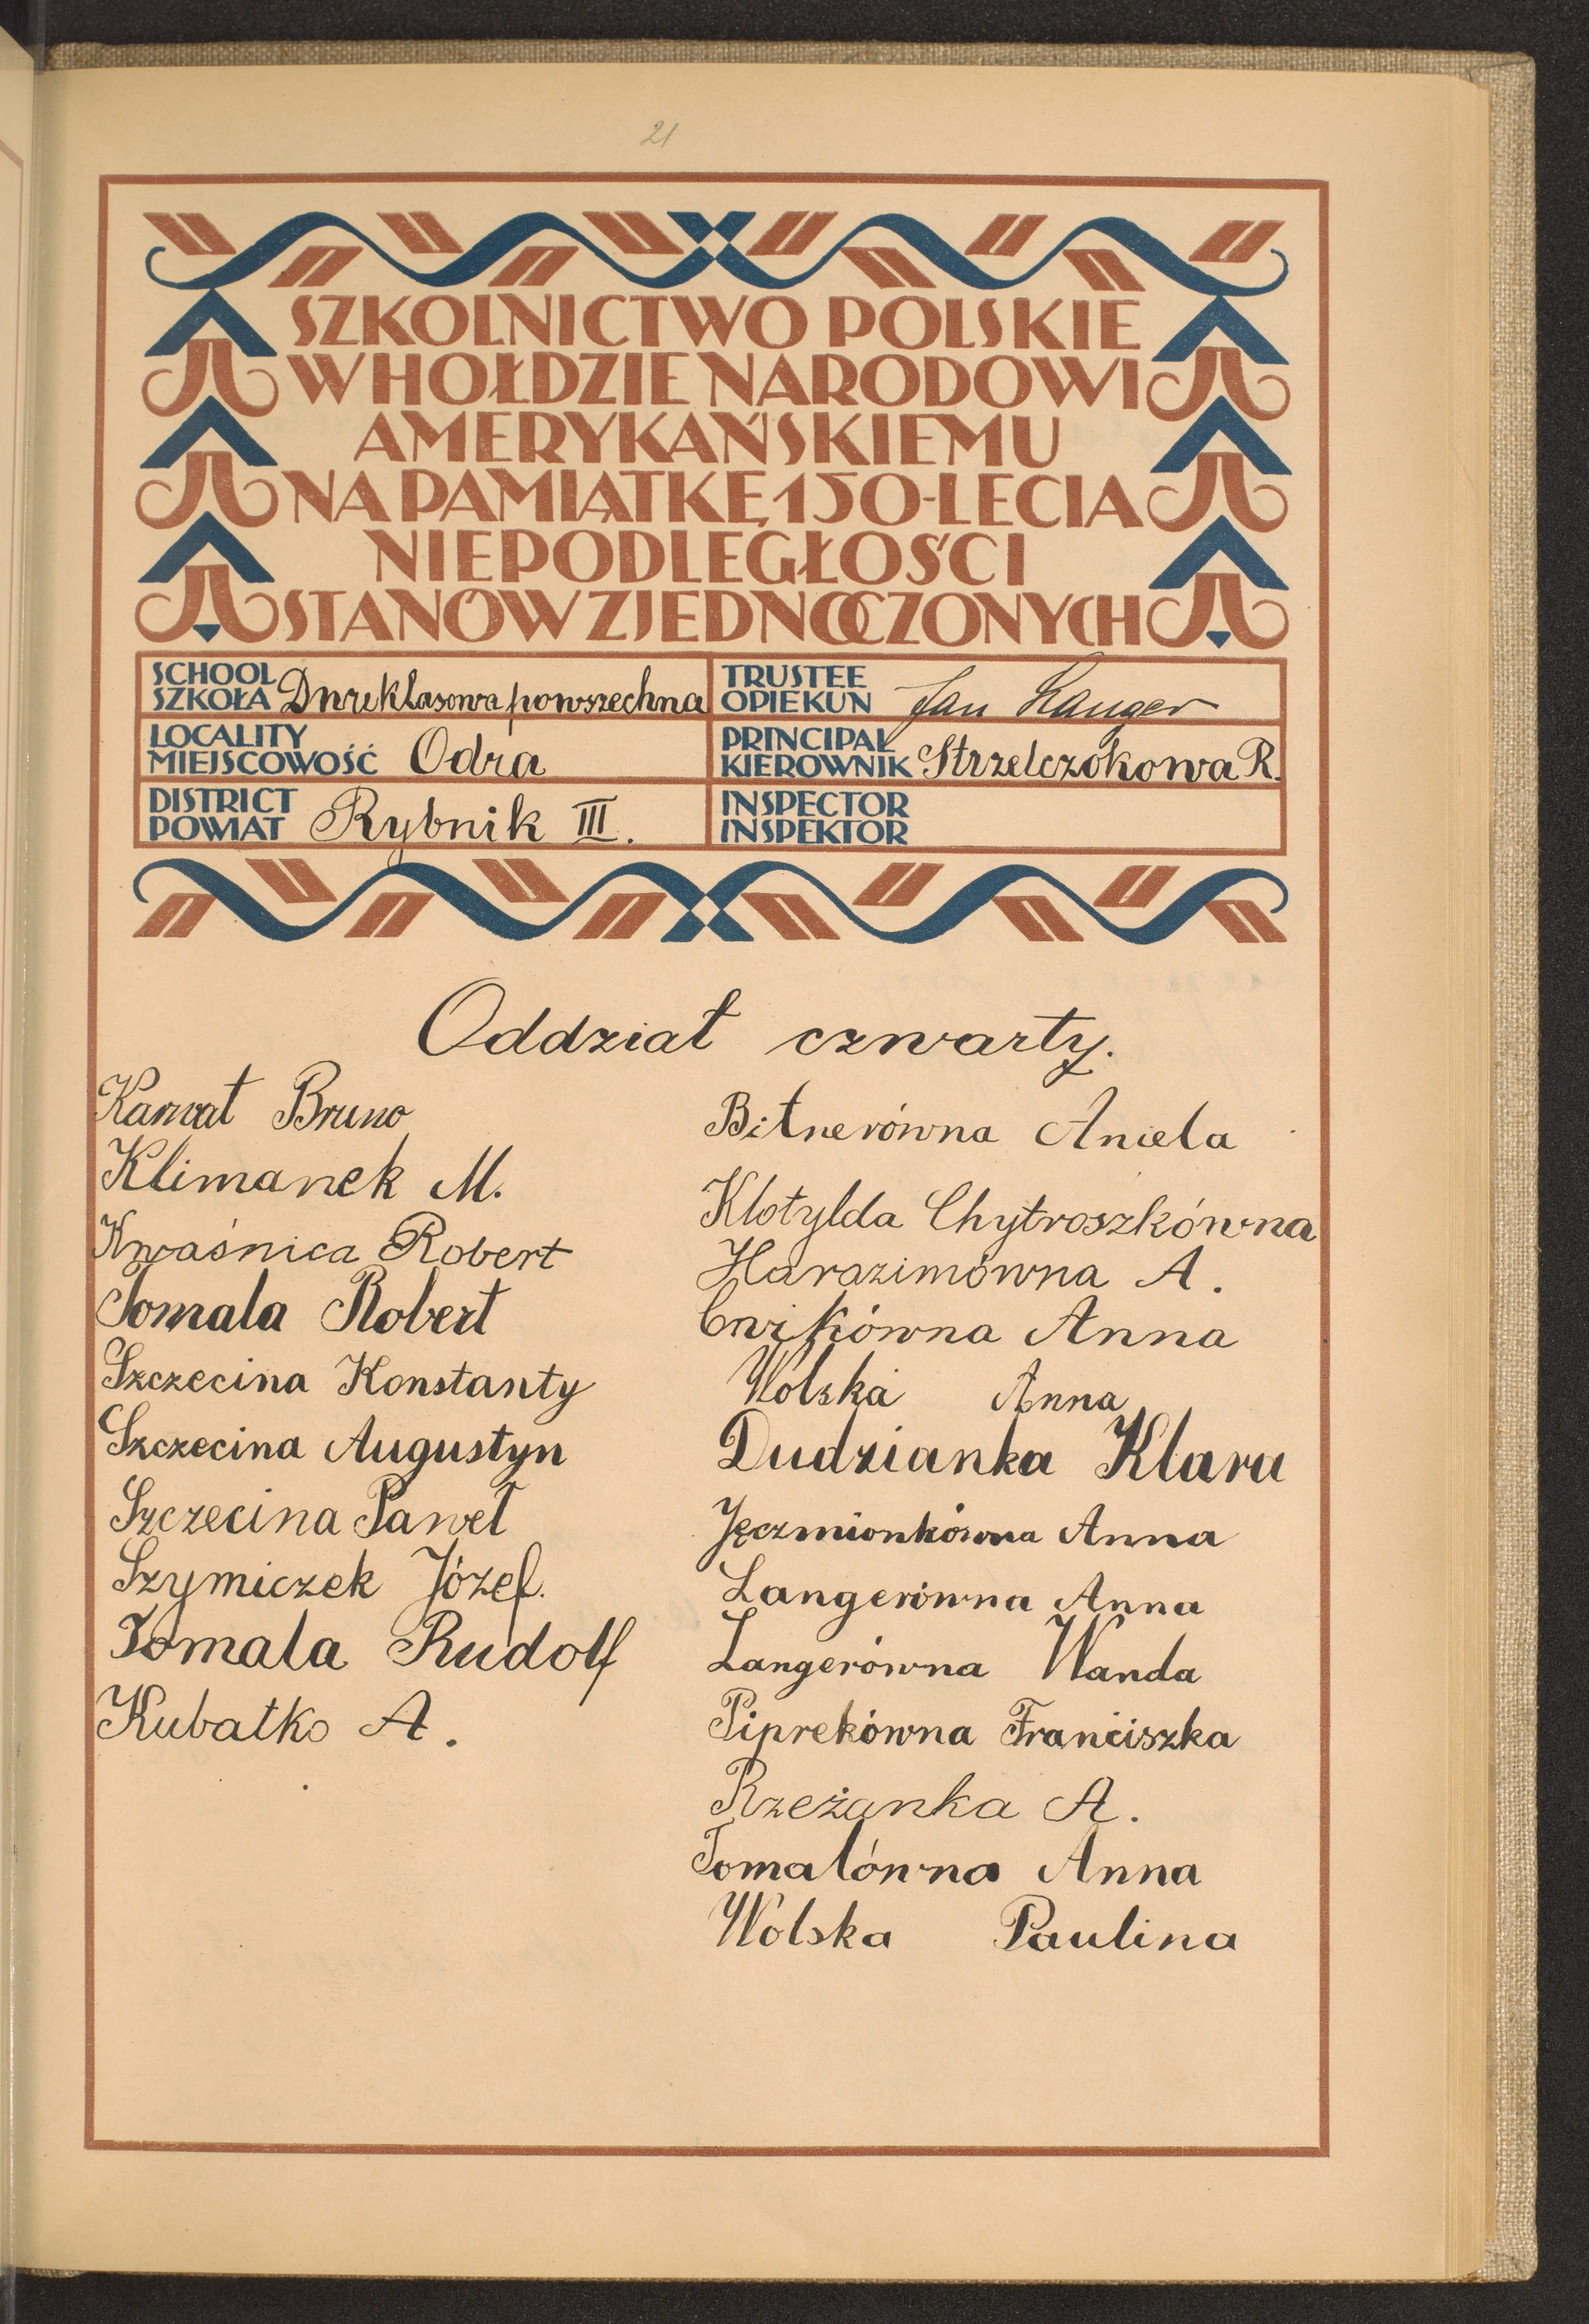 21
SZKOLNICTWO POLSKIE
W HOŁDZIE NARODOWI
AMERYKAŃSKIEMU
NA PAMIĄTKĘ 150-LECIA
NIEPODLEGŁOŚCI
STANÓW ZJEDNOCZONYCH
SCHOOL
SZKOŁA Dwuklasowa powszechna
TRUSTEE
OPIEKUN Jan Langer
LOCALITY
MIEJSCOWOŚĆ Odra
PRINCIPAL
KIEROWNIK Strzelczokowa R.
DISTRICT
POWIAT Rybnik III.
INSPECTOR
INSPEKTOR
Oddział czwarty.
Karwat Bruno
Klimanek M.
Kwaśnica Robert
Tomala Robert
Szczecina Konstanty
Szczecina Augustyn
Szczecina Paweł
Szymiczek Józef.
Tomala Rudolf
Kubatko A.
Bitnerówna Aniela
Klotylda Chytroszkówna
Harazimówna A.
Cwikówna Anna
Wolska Anna
Dudzianka Klara
Jęczmionkówna Anna
Langerówna Anna
Langerówna Wanda
Piprekówna Franciszka
Rzeżanka A.
Tomalówna Anna
Wolska Paulina